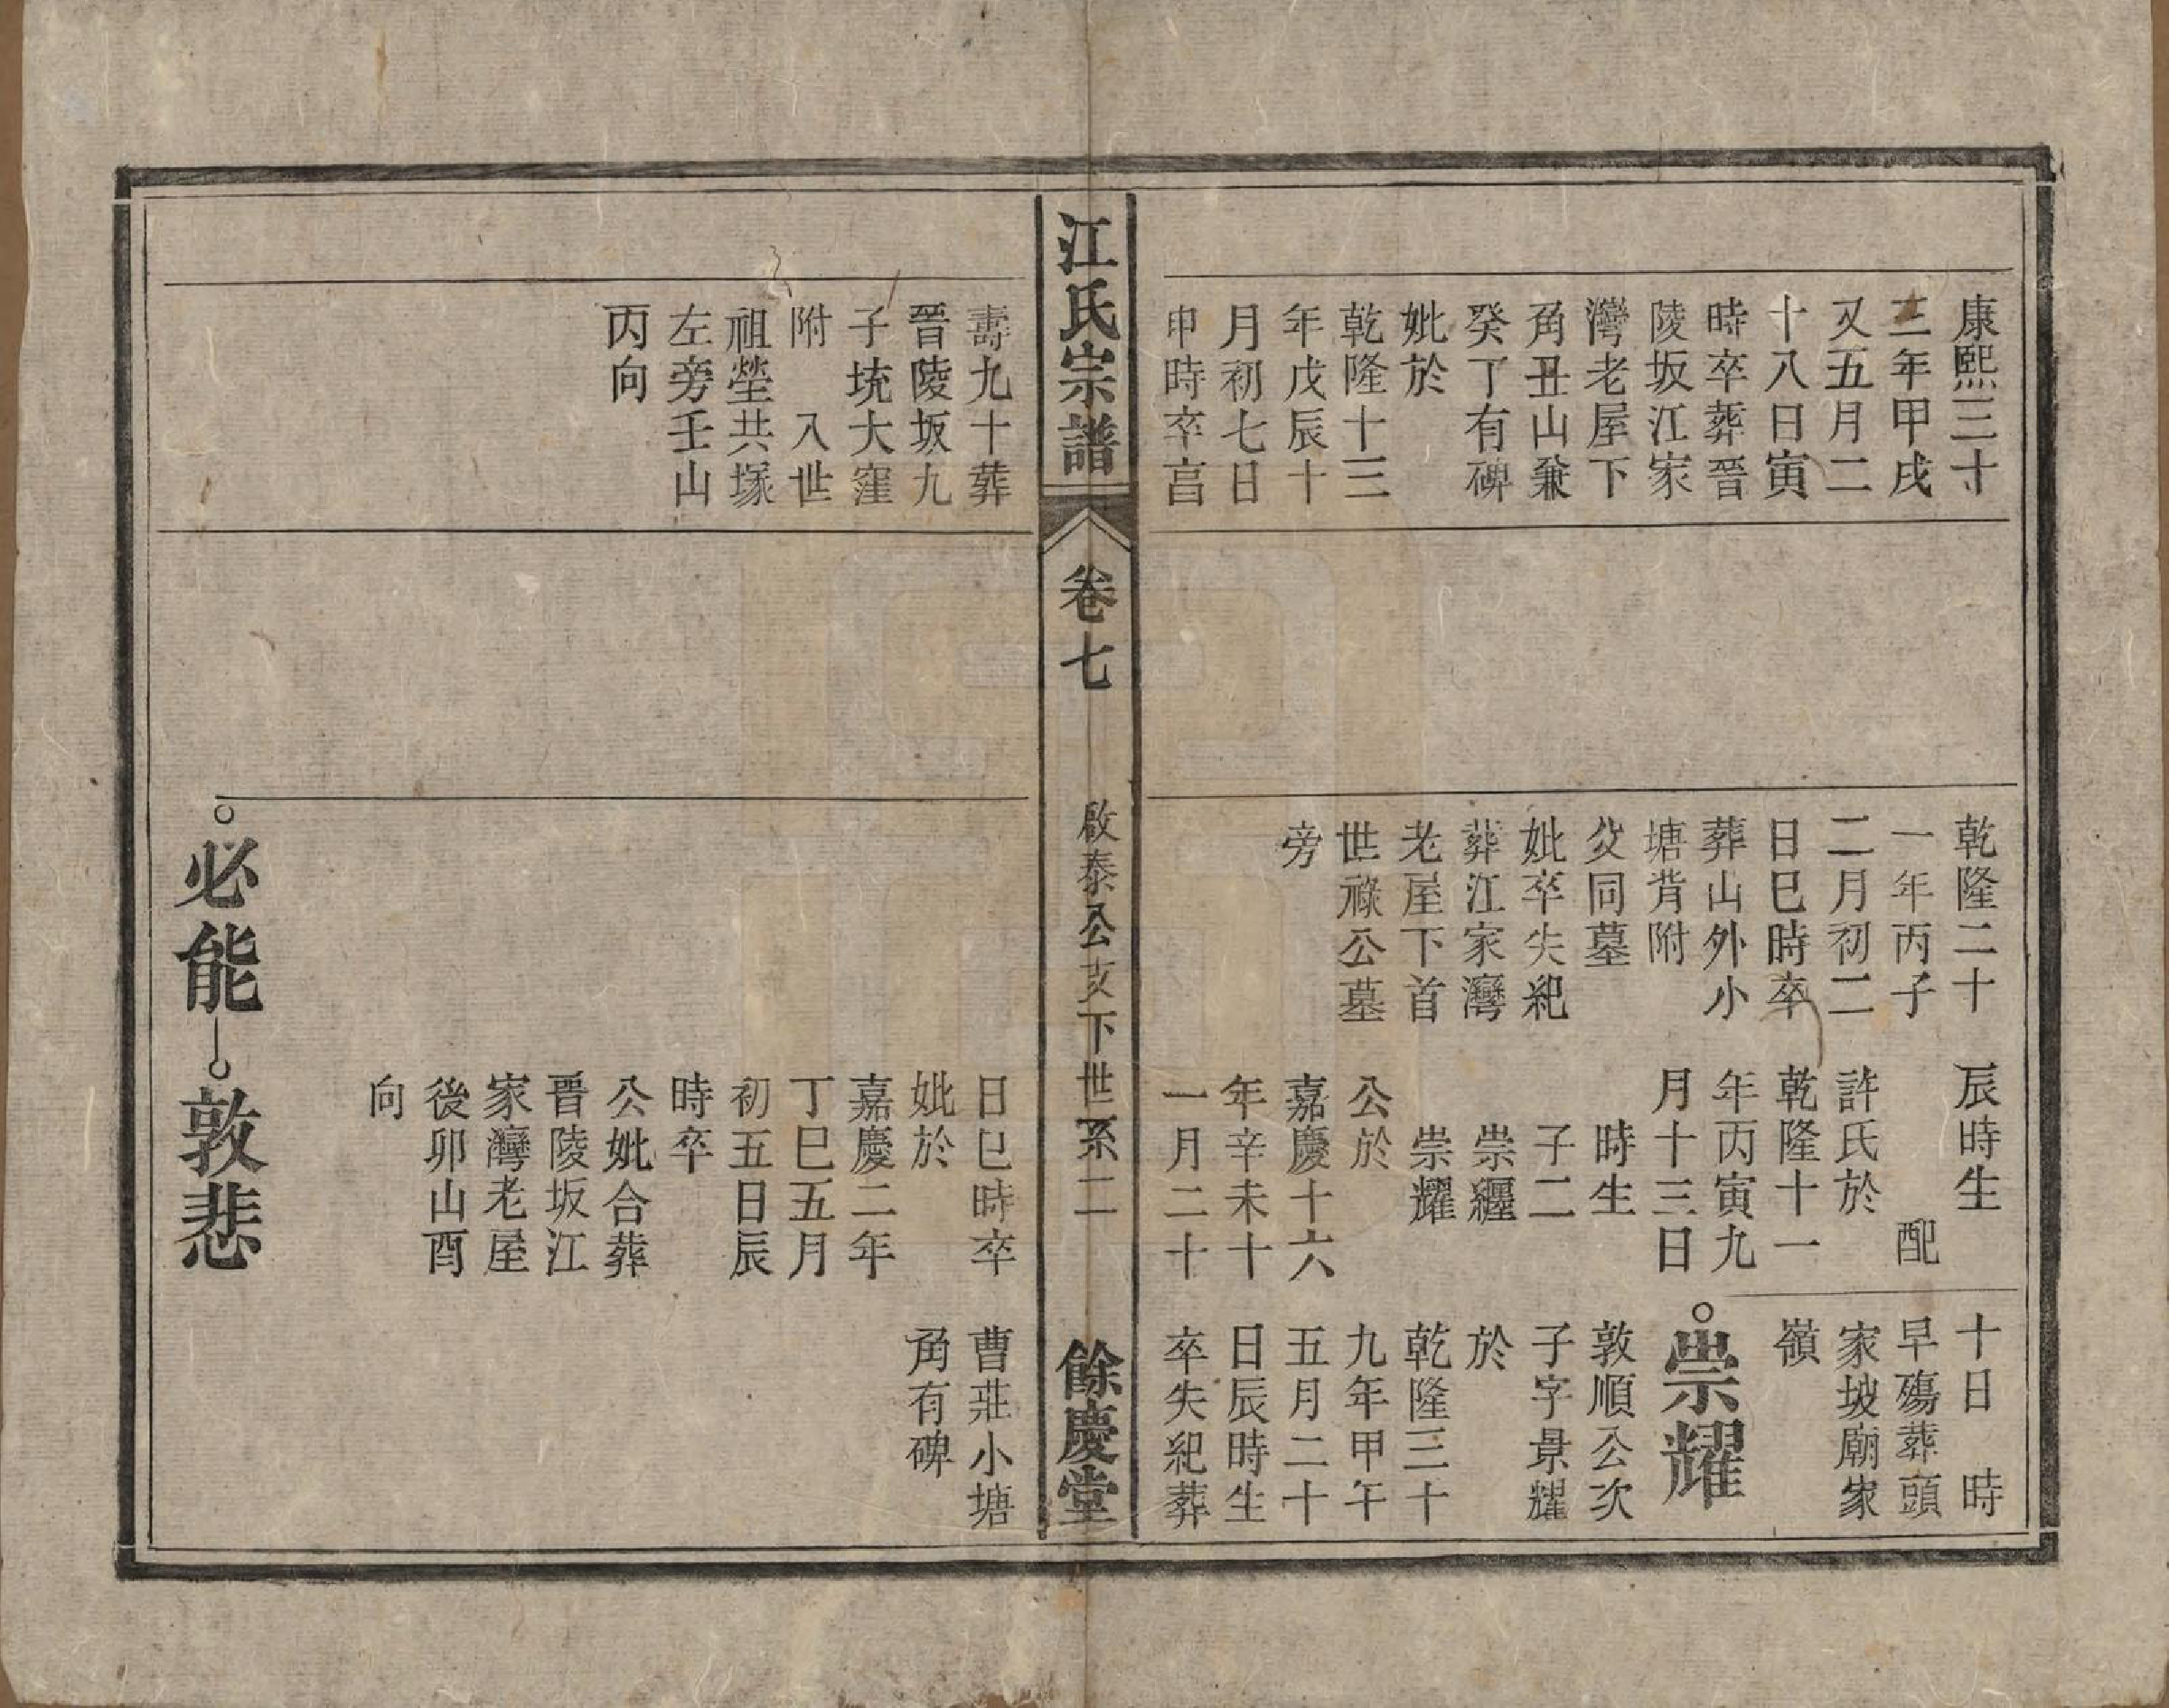 康熙三十
三年甲戌
又五月二
十八日寅
時卒葬晉
陵坂江家
灣老屋下
角丑山兼
癸丁有碑
妣於
乾隆十三
年戊辰十
月初七日
申時卒亯
乾隆二十
一年丙子
二月初二
日巳時卒
葬山外小
塘背附
父同墓
妣卒失紀
葬江家灣
老屋下首
世祿公墓
旁
辰時生
配
許氏於
乾隆十一
年丙寅九
月十三日
時生
子二
崇纒
崇耀
公於
嘉慶十六
年辛未十
一月二十
十日 時
早殤葬頭
家坡廟家
嶺
崇耀
敦順公次
子字景耀
於
乾隆三十
九年甲午
五月二十
日辰時生
卒失紀葬
江氏宗譜
卷七
啟泰公支下世系二
餘慶堂
壽九十葬
晉陵坂九
子垸大窪
附 入世
祖塋共塚
左旁壬山
丙向
日巳時卒
妣於
嘉慶二年
丁巳五月
初五日辰
時卒
公妣合葬
晉陵坂江
家灣老屋
後卯山酉
向
曹莊小塘
角有碑
必能
敦悲